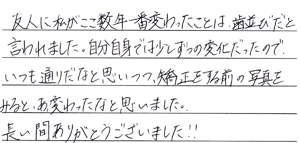 友人に私がここ数年一番変わったことは、歯並びだと
言われました。自分自身では少しずつの変化だったので、
いつも通りだなと思いつつ、矯正をする前の写真を
みると、あ、変わったなと思いました。
長い間ありがとうございました!!